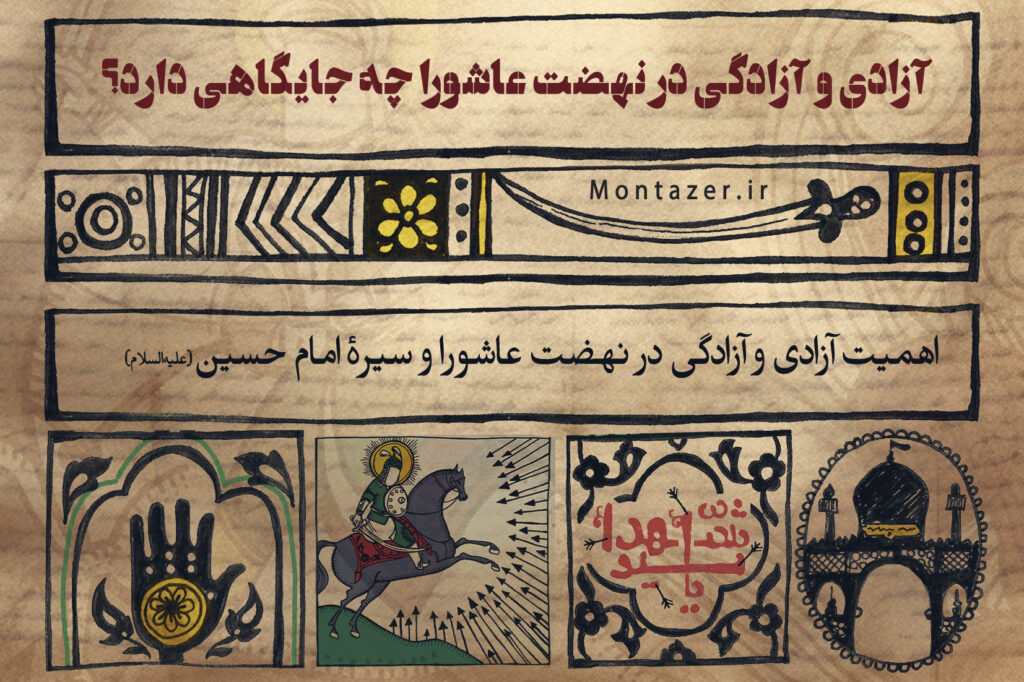 آزادی و آزادگی در نهضت عاشورا چه جایگاهی دارد؟
Montazer.ir
اهمیت آزادی و آزادگی در نهضت عاشورا و سیرۀ امام حسین (علیه‌السلام)
یا سید الشهدا